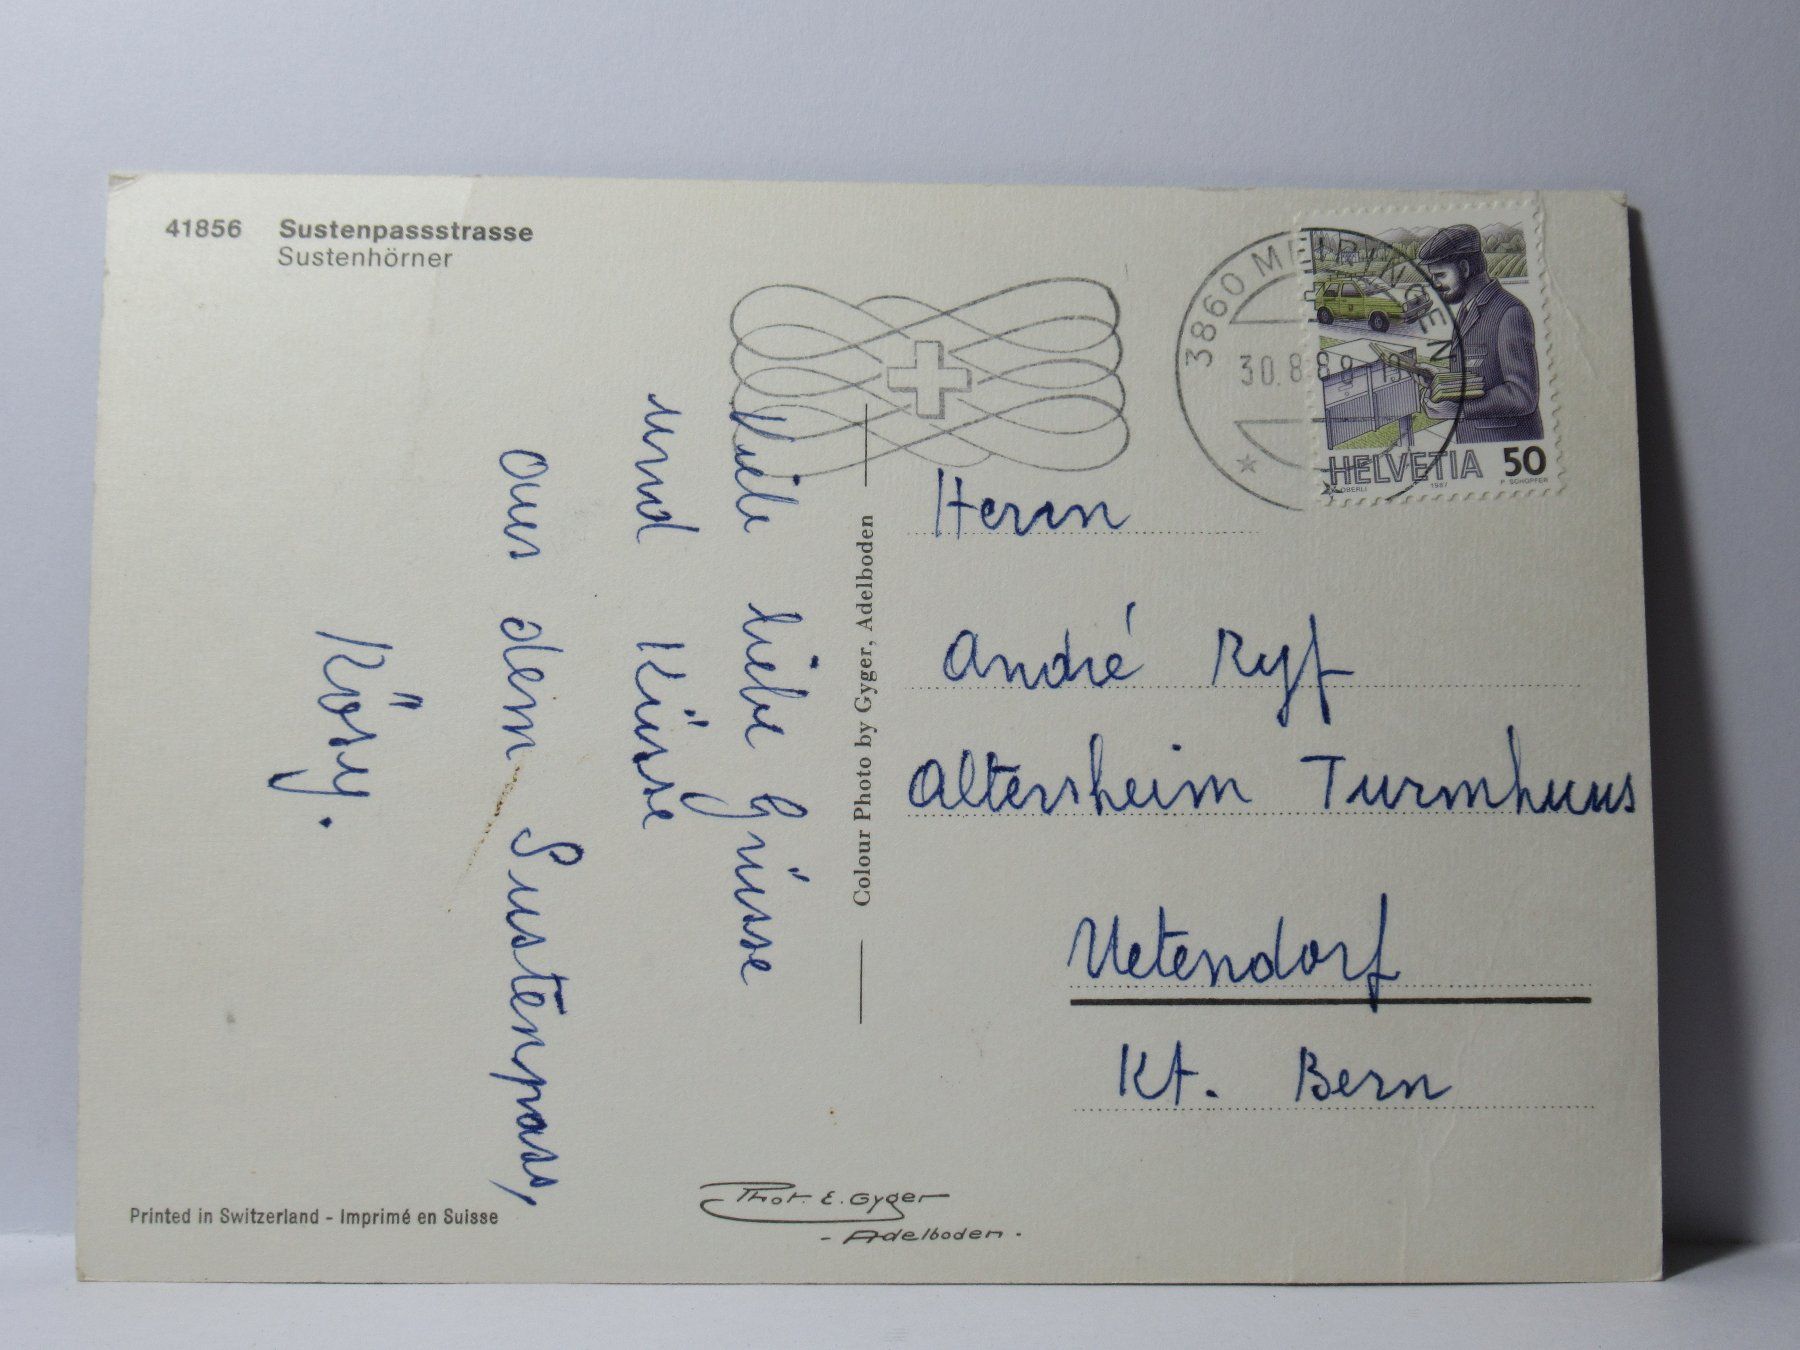 41856 Sustenpassstrasse
Sustenhörner
3860 MEIRINGEN
30.8.89 19
HELVETIA 50
K. OBERLI 1987 P. SCHOPFER
Viele liebe Grüsse
und Küsse
aus dem Sustenpass,
Rösy.
Colour Photo by Gyger, Adelboden
Herrn
André Ryf
Altersheim Turmhuus
Uetendorf
Kt. Bern
Printed in Switzerland - Imprimé en Suisse
Phot. E. Gyger
- Adelboden -